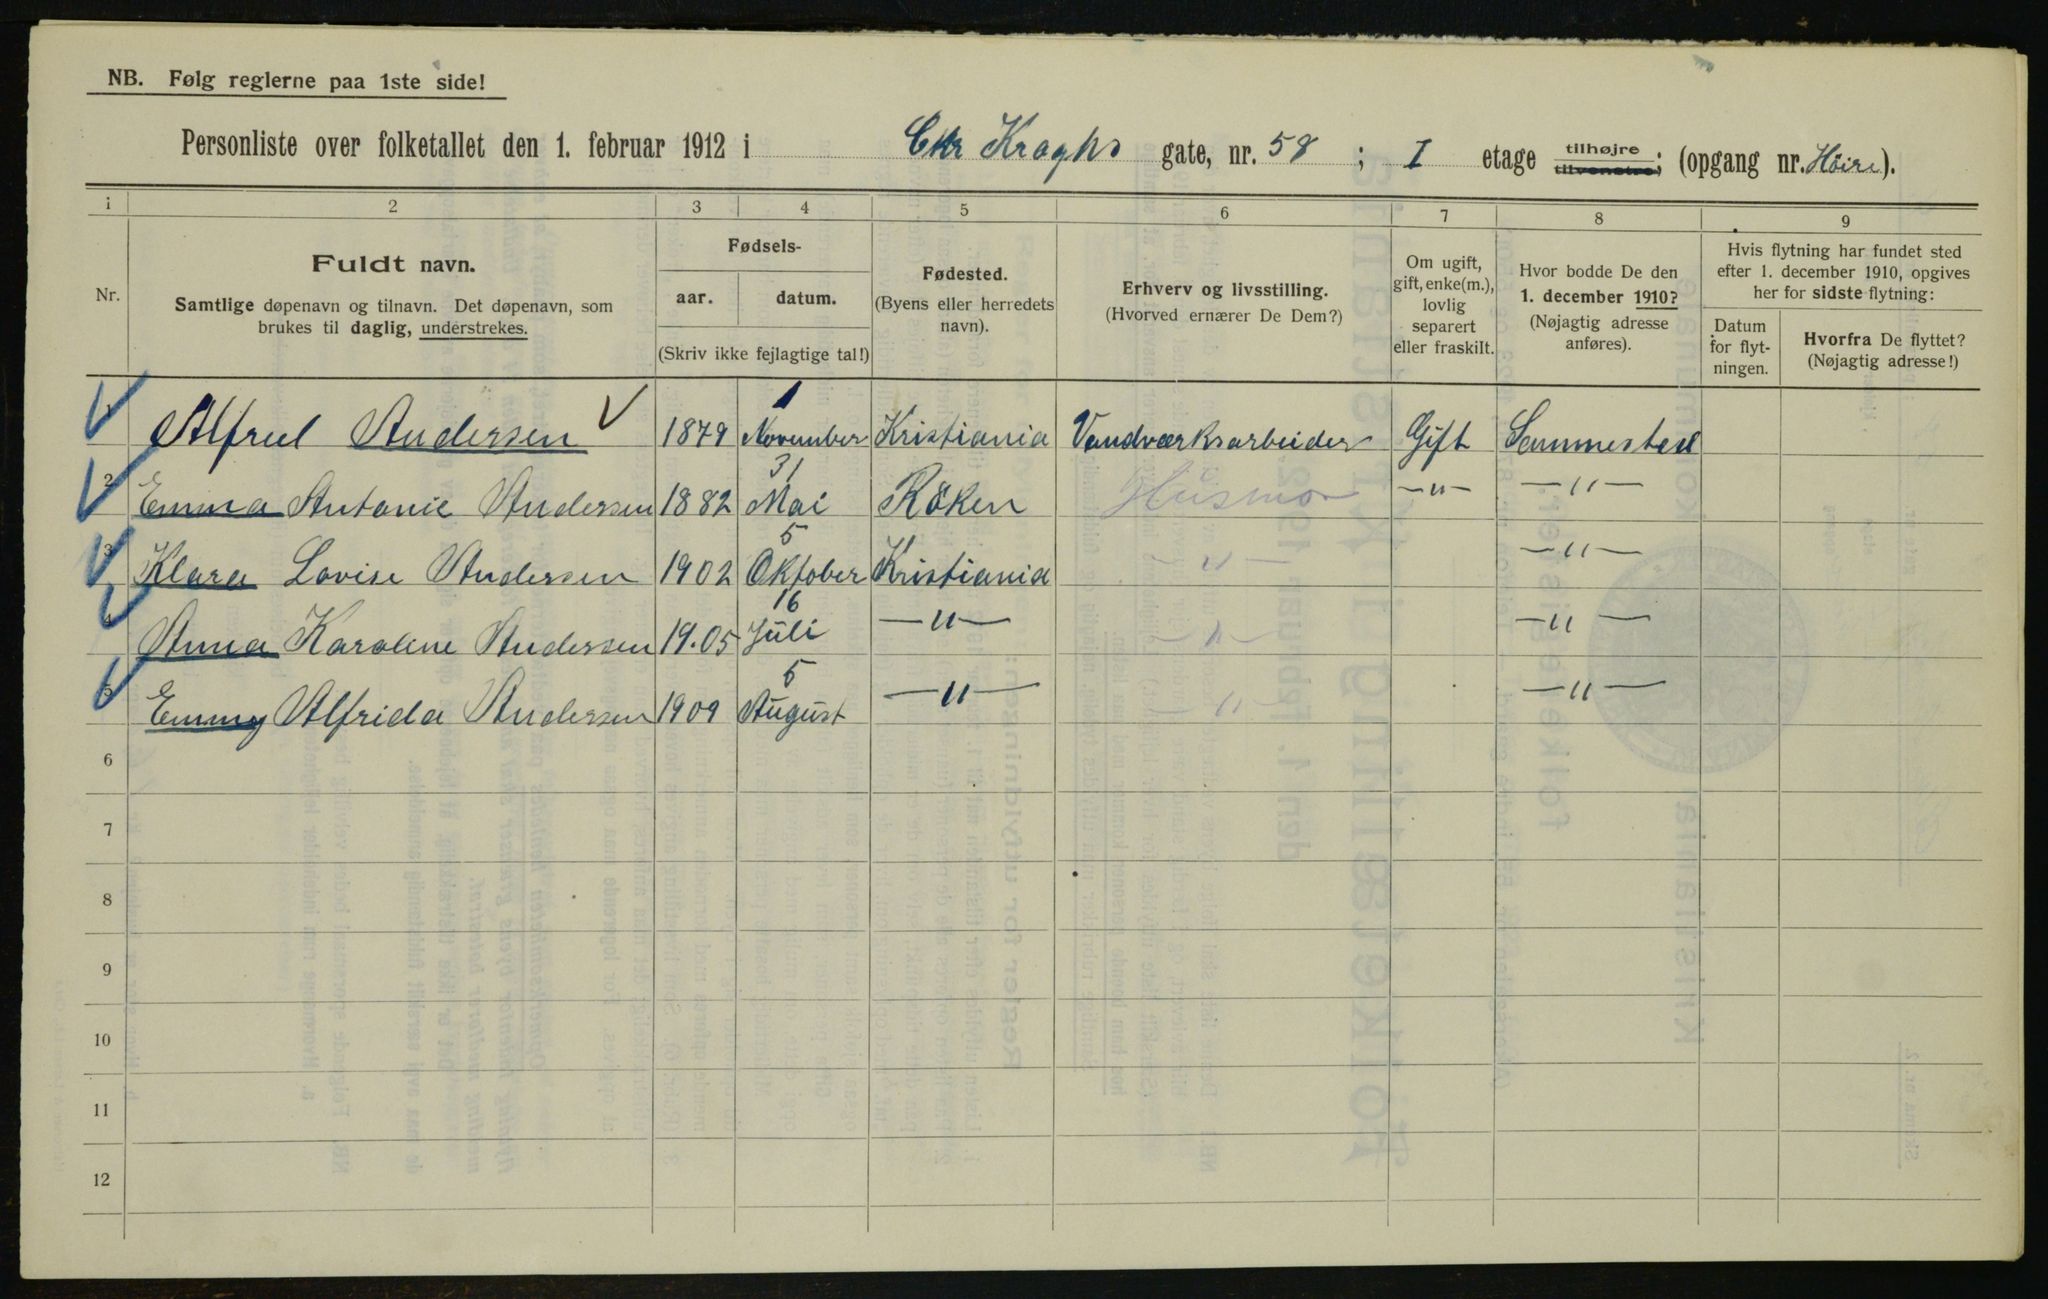 NB. Følg reglerne paa 1ste side!
Personliste over folketallet den 1. februar 1912 i Chr Kroghs gate, nr. 58 ; I etage tilhøjre tilvenstre; (opgang nr. Höire).
1 2 3 4 5 6 7 8 9
Nr.
Fuldt navn.
Samtlige døpenavn og tilnavn. Det døpenavn, som
brukes til daglig, understrekes.
Fødsels-
aar. datum.
(Skriv ikke fejlagtige tal!)
Fødested.
(Byens eller herredets
navn).
Erhverv og livsstilling.
(Hvorved ernærer De Dem?)
Om ugift,
gift, enke(m.),
lovlig
separert
eller fraskilt.
Hvor bodde De den
1. december 1910?
(Nøjagtig adresse
anføres).
Hvis flytning har fundet sted
efter 1. december 1910, opgives
her for sidste flytning:
Datum
for flyt-
ningen.
Hvorfra De flyttet?
(Nøjagtig adresse!)
1 Alfred Andersen 1879 1 November Kristiania Vandværksarbeider Gift Sammested
2 Emma Antonie Andersen 1882 31 Mai Röken Husmor —"— —"—
3 Klara Lovise Andersen 1902 5 Oktober Kristiania —"— —"—
4 Anna Karoline Andersen 19.05 16 Juli —"— —"— —"—
5 Emmy Alfrida Andersen 1909 5 August —"— —"— —"—
6
7
8
9
10
11
12